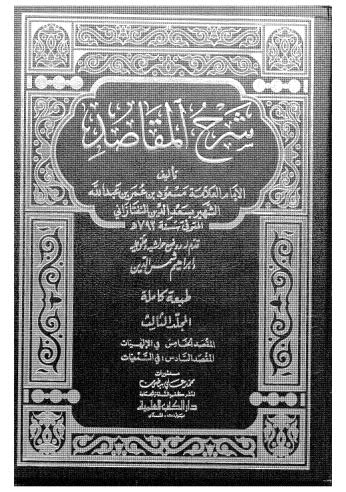 شرح المقاصد
تأليف
الإمام العلامة مسعود بن عمر بن عبد الله
الشهير بسعد الدين التفتازاني
المتوفى سنة ٧٩٢ هـ
قدم له ووضع حواشيه وعلق عليه
إبراهيم شمس الدين
طبعة كاملة
المجلد الثالث
المقصد الخامس: في الإلهيات
المقصد السادس: في السمعيات
منشورات
محمد علي بيضون
لنشر كتب السنة والجماعة
دار الكتب العلمية
بيروت - لبنان